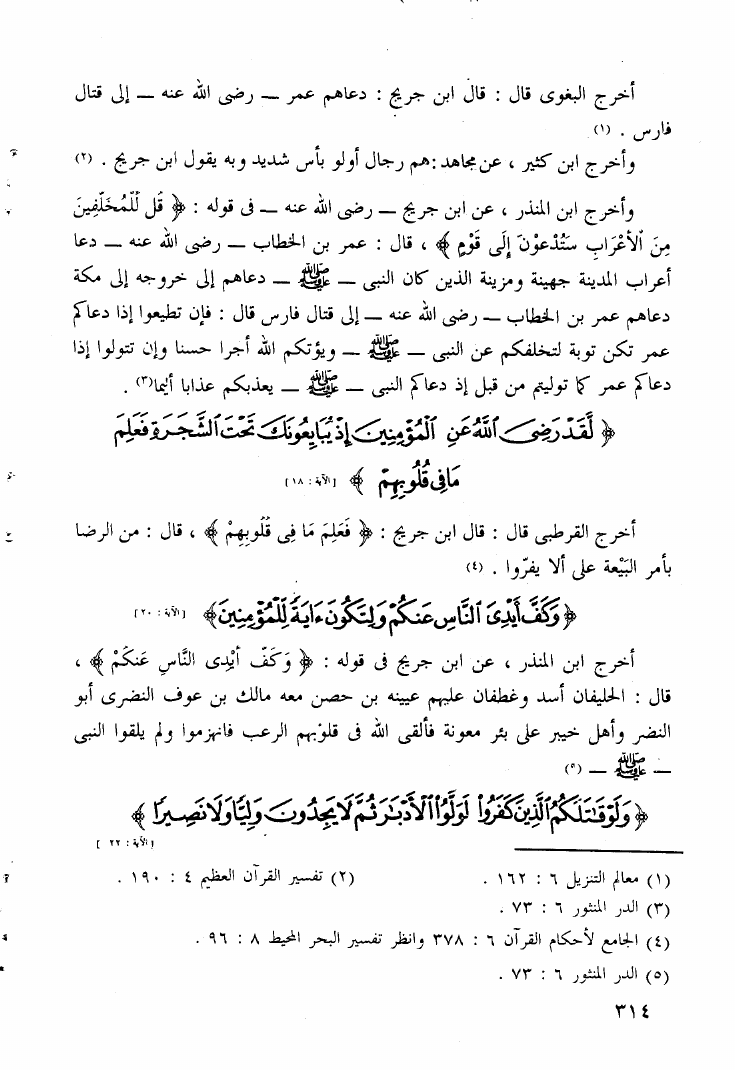 أخرج البغوى قال : قال ابن جريج : دعاهم عمر — رضى الله عنه — إلى قتال
فارس . (١)
وأخرج ابن كثير ، عن مجاهد : هم رجال أولو بأس شديد وبه يقول ابن جريج . (٢)
وأخرج ابن المنذر ، عن ابن جريج — رضى الله عنه — فى قوله : ﴿ قُل لِّلْمُخَلَّفِينَ
مِنَ ٱلْأَعْرَابِ سَتُدْعَوْنَ إِلَى قَوْمٍ ﴾ ، قال : عمر بن الخطاب — رضى الله عنه — دعا
أعراب المدينة جهينة ومزينة الذين كان النبى — ﷺ — دعاهم إلى خروجه إلى مكة
دعاهم عمر بن الخطاب — رضى الله عنه — إلى قتال فارس قال : فإن تطيعوا إذا دعاكم
عمر تكن توبة لتخلفكم عن النبى — ﷺ — ويؤتكم الله أجرا حسنا وإن تتولوا إذا
دعاكم عمر كما توليتم من قبل إذ دعاكم النبى — ﷺ — يعذبكم عذابا أليما(٣) .
﴿ لَّقَدْ رَضِىَ ٱللَّهُ عَنِ ٱلْمُؤْمِنِينَ إِذْ يُبَايِعُونَكَ تَحْتَ ٱلشَّجَرَةِ فَعَلِمَ
مَا فِى قُلُوبِهِمْ ﴾ [الآية : ١٨]
أخرج القرطبى قال : قال ابن جريج : ﴿ فَعَلِمَ مَا فِى قُلُوبِهِمْ ﴾ ، قال : من الرضا
بأمر البَيْعة على ألا يفرّوا . (٤)
﴿ وَكَفَّ أَيْدِىَ ٱلنَّاسِ عَنكُمْ وَلِتَكُونَ ءَايَةً لِّلْمُؤْمِنِينَ ﴾ [الآية : ٢٠]
أخرج ابن المنذر ، عن ابن جريج فى قوله : ﴿ وَكَفَّ أَيْدِى النَّاسِ عَنكُمْ ﴾ ،
قال : الحليفان أسد وغطفان عليهم عيينه بن حصن معه مالك بن عوف النضرى أبو
النضر وأهل خيبر على بئر معونة فألقى الله فى قلوبهم الرعب فانهزموا ولم يلقوا النبى
— ﷺ — (٥)
﴿ وَلَوْ قَٰتَلَكُمُ ٱلَّذِينَ كَفَرُوا۟ لَوَلَّوُا۟ ٱلْأَدْبَٰرَ ثُمَّ لَا يَجِدُونَ وَلِيًّا وَلَا نَصِيرًا ﴾
[الآية : ٢٢ ]
(١) معالم التنزيل ٦ : ١٦٢ . (٢) تفسير القرآن العظيم ٤ : ١٩٠ .
(٣) الدر المنثور ٦ : ٧٣ .
(٤) الجامع لأحكام القرآن ٦ : ٣٧٨ وانظر تفسير البحر المحيط ٨ : ٩٦ .
(٥) الدر المنثور ٦ : ٧٣ .
٣١٤